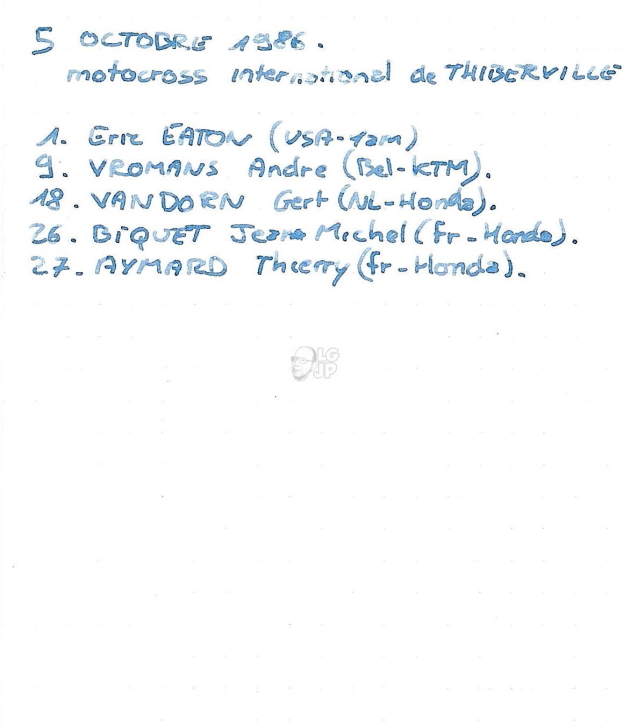 5 OCTOBRE 1986.
motocross international de THIBERVILLE
1. Eric EATON (USA-Yam)
9. VROMANS Andre (Bel-KTM).
18. VANDORN Gert (NL-Honda).
26. BIQUET Jean Michel (fr-Honda).
27. AYMARD Thierry (fr-Honda).
LG
JP